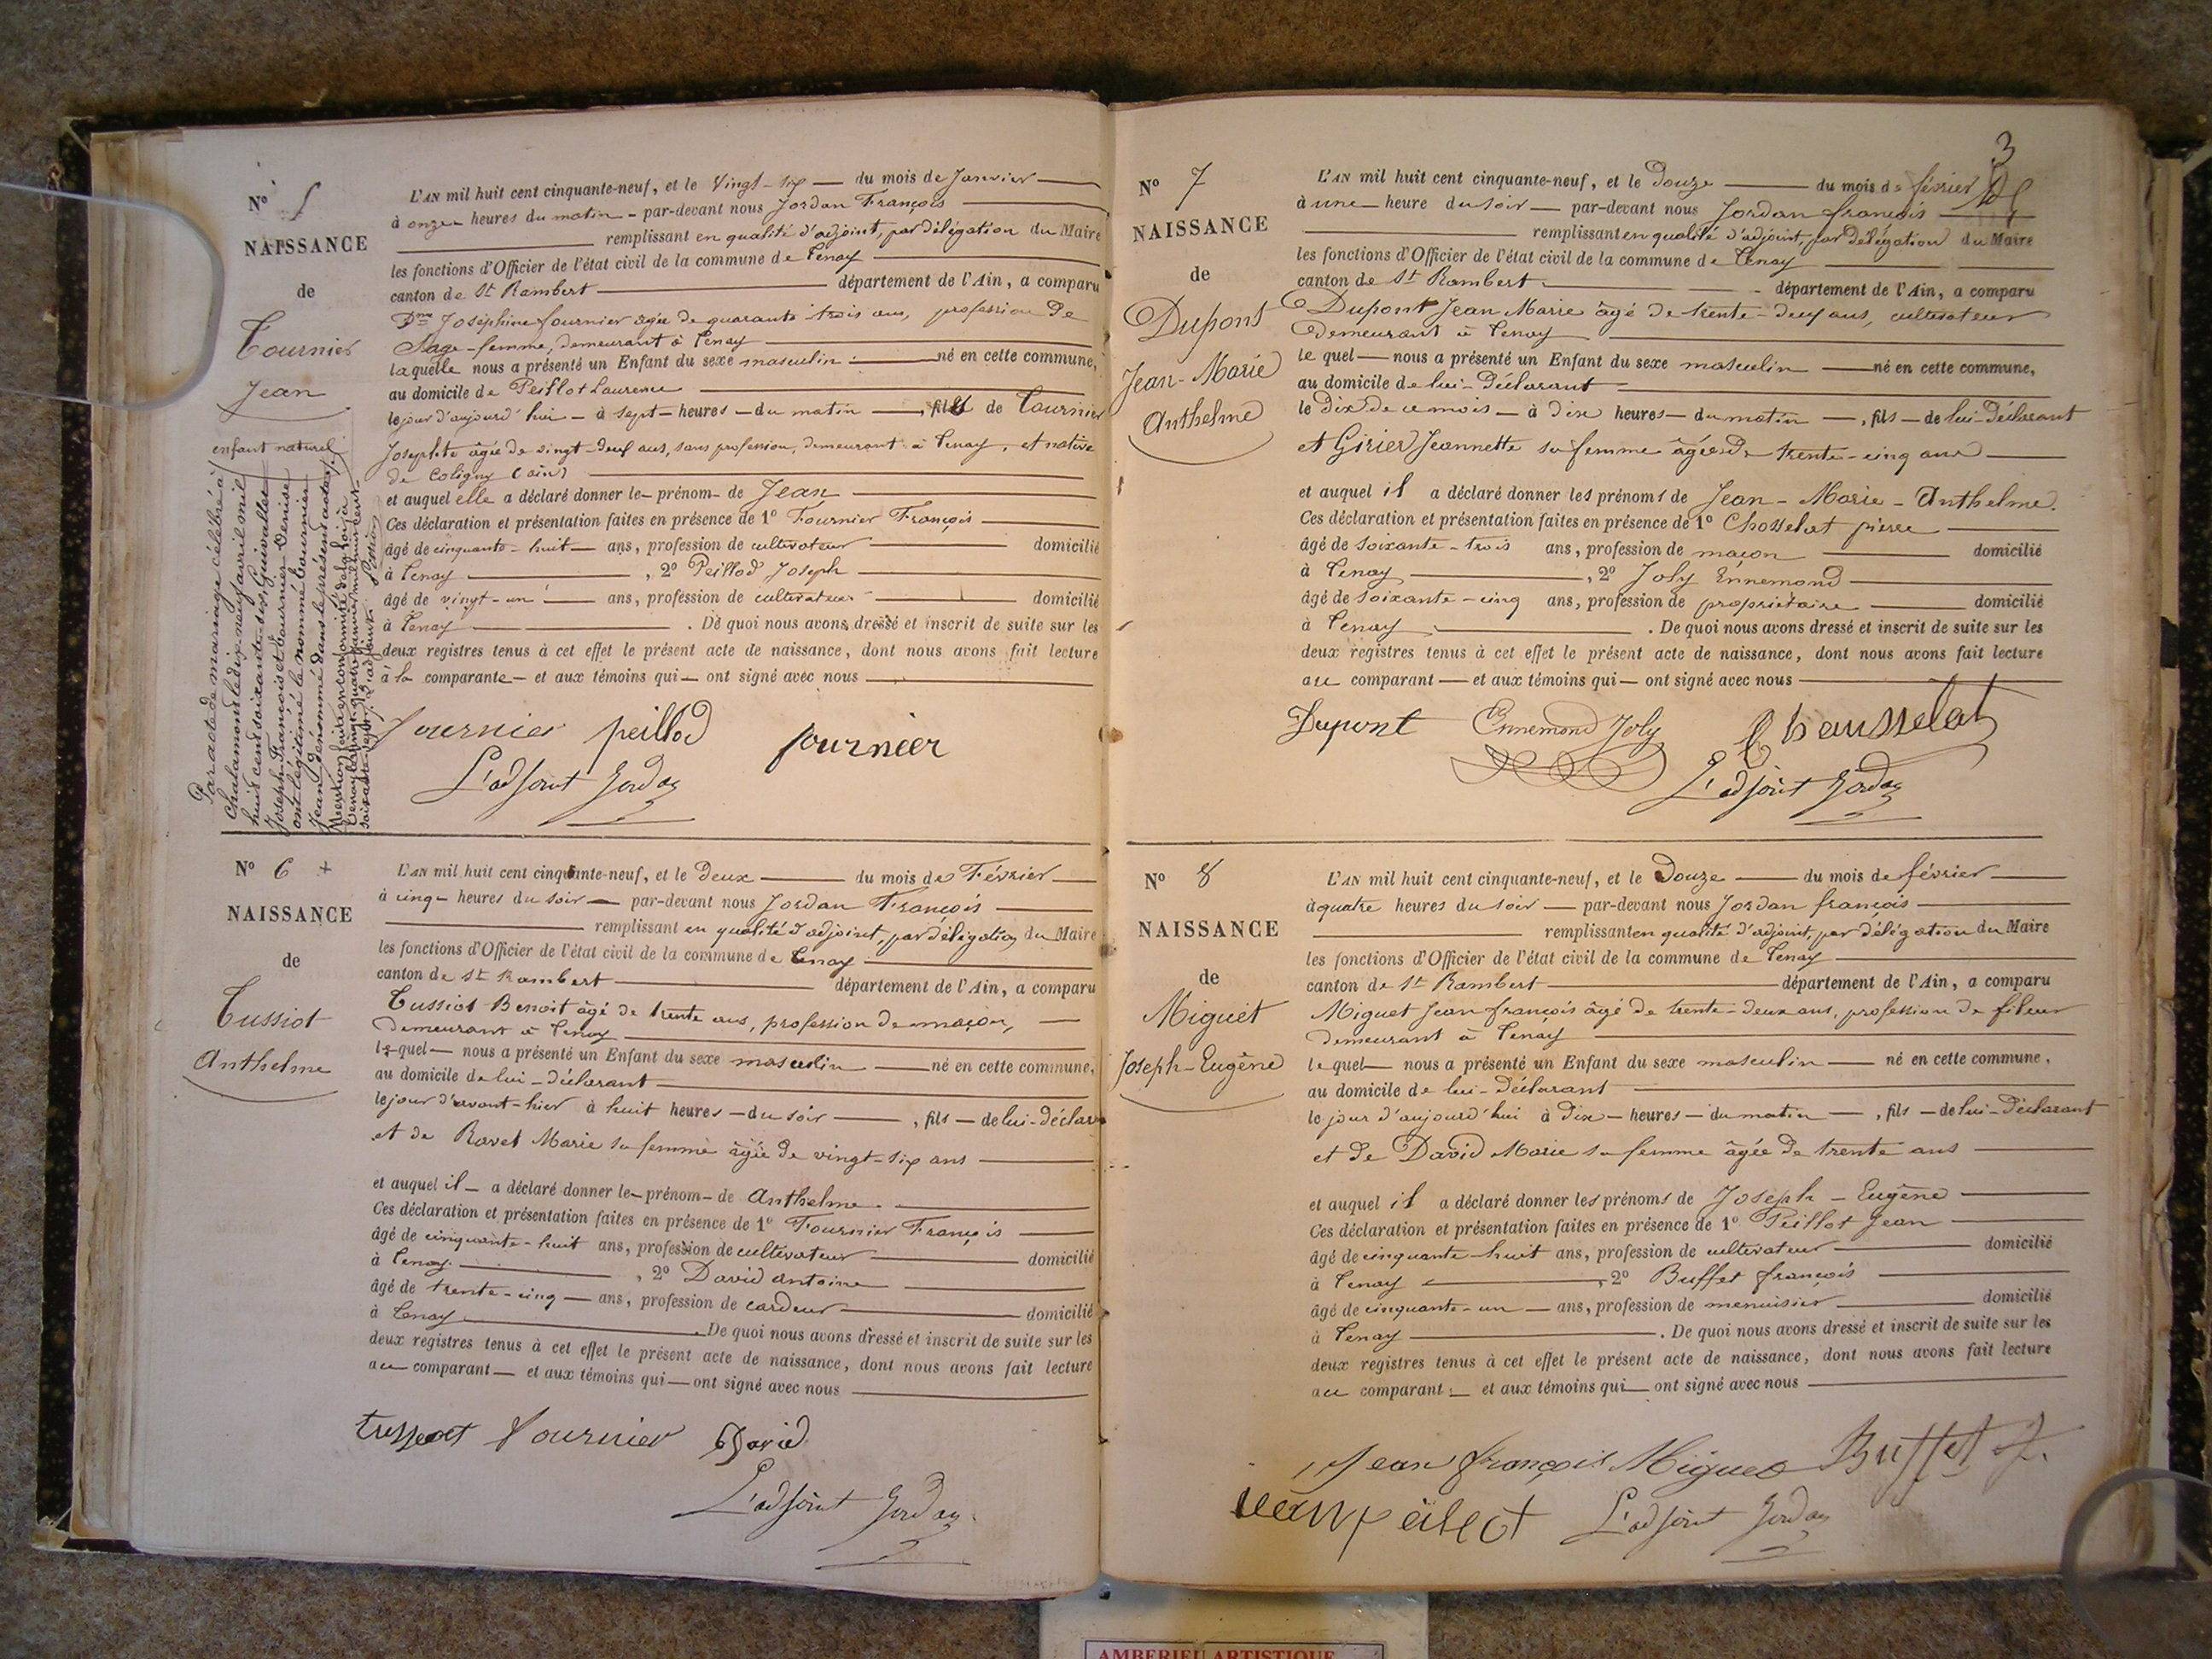 N° 5
NAISSANCE
de
Tournier
Jean
enfant naturel
Par acte de mariage célébré à
Chalamont le dix-neuf avril mil
huit cent soixante-six, Guivallet
Joseph-François et Tournier Denise
ont légitimé le nommé Tournier
Jean, dénommé dans le présent acte.
Mention faite en conformité de la loi, à
Tenay le vingt-quatre janvier mil neuf cent
L'AN mil huit cent cinquante-neuf, et le vingt-six du mois de Janvier
à onze heures du matin - par-devant nous Jordan François
remplissant en qualité d'adjoint, par délégation du Maire
les fonctions d'Officier de l'état civil de la commune de Tenay
canton de St Rambert département de l'Ain, a comparu
Dme Joséphine fournier âgée de quarante-trois ans, profession de
Sage-femme, demeurant à Tenay
laquelle nous a présenté un Enfant du sexe masculin né en cette commune,
au domicile de Peillot Laurence
le jour d'aujourd'hui - à sept - heures - du matin - , fils de Tournier
Josephte âgée de vingt-deux ans, sans profession, demeurant à Tenay, et native
de Coligny (ain)
et auquel elle a déclaré donner le prénom de Jean
Ces déclaration et présentation faites en présence de 1° Fournier François
âgé de cinquante-huit ans, profession de cultivateur domicilié
à Tenay , 2° Peillod Joseph
âgé de vingt-un ans, profession de cultivateur domicilié
à Tenay . De quoi nous avons dressé et inscrit de suite sur les
deux registres tenus à cet effet le présent acte de naissance, dont nous avons fait lecture
à la comparante - et aux témoins qui - ont signé avec nous
fournier peillod fournier
L'adjoint Jordan
N° 6 +
NAISSANCE
de
Tussiot
Anthelme
L'AN mil huit cent cinquante-neuf, et le deux du mois de Février
à cinq heures du soir - par-devant nous Jordan François
remplissant en qualité d'adjoint, par délégation du Maire
les fonctions d'Officier de l'état civil de la commune de Tenay
canton de St Rambert département de l'Ain, a comparu
Tussiot Benoit âgé de trente ans, profession de maçon,
demeurant à Tenay
lequel - nous a présenté un Enfant du sexe masculin né en cette commune,
au domicile de lui-déclarant
le jour d'avant-hier à huit heures - du soir , fils - de lui-déclar
et de Ravet Marie sa femme âgée de vingt-six ans
et auquel il a déclaré donner le prénom de Anthelme
Ces déclaration et présentation faites en présence de 1° Fournier François
âgé de cinquante-huit ans, profession de cultivateur domicilié
à Tenay , 2° David antoine
âgé de trente-cinq ans, profession de cardeur domicilié
à Tenay . De quoi nous avons dressé et inscrit de suite sur les
deux registres tenus à cet effet le présent acte de naissance, dont nous avons fait lecture
au comparant - et aux témoins qui - ont signé avec nous
fournier David
L'adjoint Jordan
3
N° 7
NAISSANCE
de
Dupont
Jean-Marie
Anthelme
L'AN mil huit cent cinquante-neuf, et le douze du mois de février
à une heure du soir - par-devant nous Jordan françois
remplissant en qualité d'adjoint, par délégation du Maire
les fonctions d'Officier de l'état civil de la commune de Tenay
canton de St Rambert département de l'Ain, a comparu
Dupont Jean Marie âgé de trente-deux ans, cultivateur
demeurant à Tenay
lequel - nous a présenté un Enfant du sexe masculin né en cette commune,
au domicile de lui-déclarant
le dix de ce mois - à dix heures - du matin - , fils - de lui-déclarant
et Girier Jeannette sa femme âgée de trente-cinq ans
et auquel il a déclaré donner les prénoms de Jean-Marie-Anthelme.
Ces déclaration et présentation faites en présence de 1° Chosselat pierre
âgé de soixante-trois ans, profession de maçon domicilié
à Tenay , 2° Joly Ennemond
âgé de soixante-cinq ans, profession de propriétaire domicilié
à Tenay . De quoi nous avons dressé et inscrit de suite sur les
deux registres tenus à cet effet le présent acte de naissance, dont nous avons fait lecture
au comparant - et aux témoins qui - ont signé avec nous
Dupont Ennemond Joly Chausselat
L'adjoint Jordan
N° 8
NAISSANCE
de
Miguet
Joseph-Eugène
L'AN mil huit cent cinquante-neuf, et le douze du mois de février
à quatre heures du soir - par-devant nous Jordan françois
remplissant en qualité d'adjoint, par délégation du Maire
les fonctions d'Officier de l'état civil de la commune de Tenay
canton de St Rambert département de l'Ain, a comparu
Miguet Jean françois âgé de trente-deux ans, profession de fileur
demeurant à Tenay
lequel - nous a présenté un Enfant du sexe masculin né en cette commune,
au domicile de lui-déclarant
le jour d'aujourd'hui à dix - heures - du matin - , fils - de lui-déclarant
et de David Marie sa femme âgée de trente ans
et auquel il a déclaré donner les prénoms de Joseph-Eugène
Ces déclaration et présentation faites en présence de 1° Peillot Jean
âgé de cinquante-huit ans, profession de cultivateur domicilié
à Tenay , 2° Buffet françois
âgé de cinquante-un ans, profession de menuisier domicilié
à Tenay . De quoi nous avons dressé et inscrit de suite sur les
deux registres tenus à cet effet le présent acte de naissance, dont nous avons fait lecture
au comparant - et aux témoins qui - ont signé avec nous
Jean françois Miguet Buffet f.
jean peillot L'adjoint Jordan
AMBERIEU ARTISTIQUE